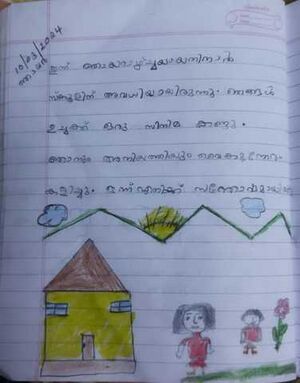 10/03/2024
ഞായർ
ഇന്ന് ഞായറാഴ്ച്ചയായതിനാൽ
സ്കൂളിന് അവധിയായിരുന്നു. ഞങ്ങൾ
ഉച്ചക്ക് ഒരു സിനിമ കണ്ടു.
ഞാനും അനിയത്തിയും വൈകുന്നേരം
കളിച്ചു. ഇന്ന് എനിക്ക് സന്തോഷമായി